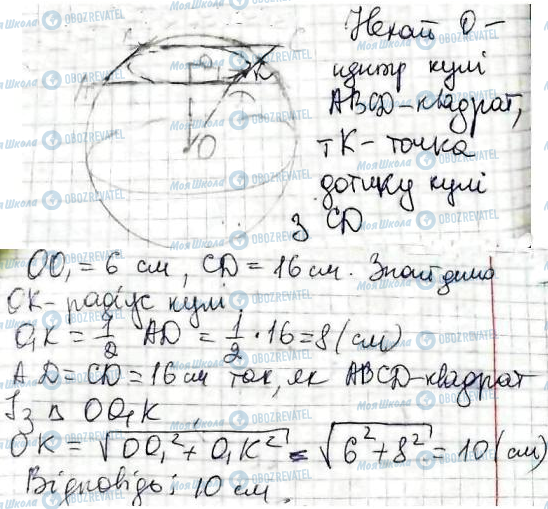 Нехай О –
центр кулі
ABCD – квадрат,
т К – точка
дотику кулі
з CD
O
K
OO₁ = 6 см, CD = 16 см. Знайдемо
OK – радіус кулі
O₁K = 1/2 AD = 1/2 · 16 = 8 (см)
AD = CD = 16 см так, як ABCD – квадрат
Із Δ OO₁K
OK = √OO₁² + O₁K² = √6² + 8² = 10 (см)
Відповідь: 10 см.
Моя Школа
OBOZREVATEL